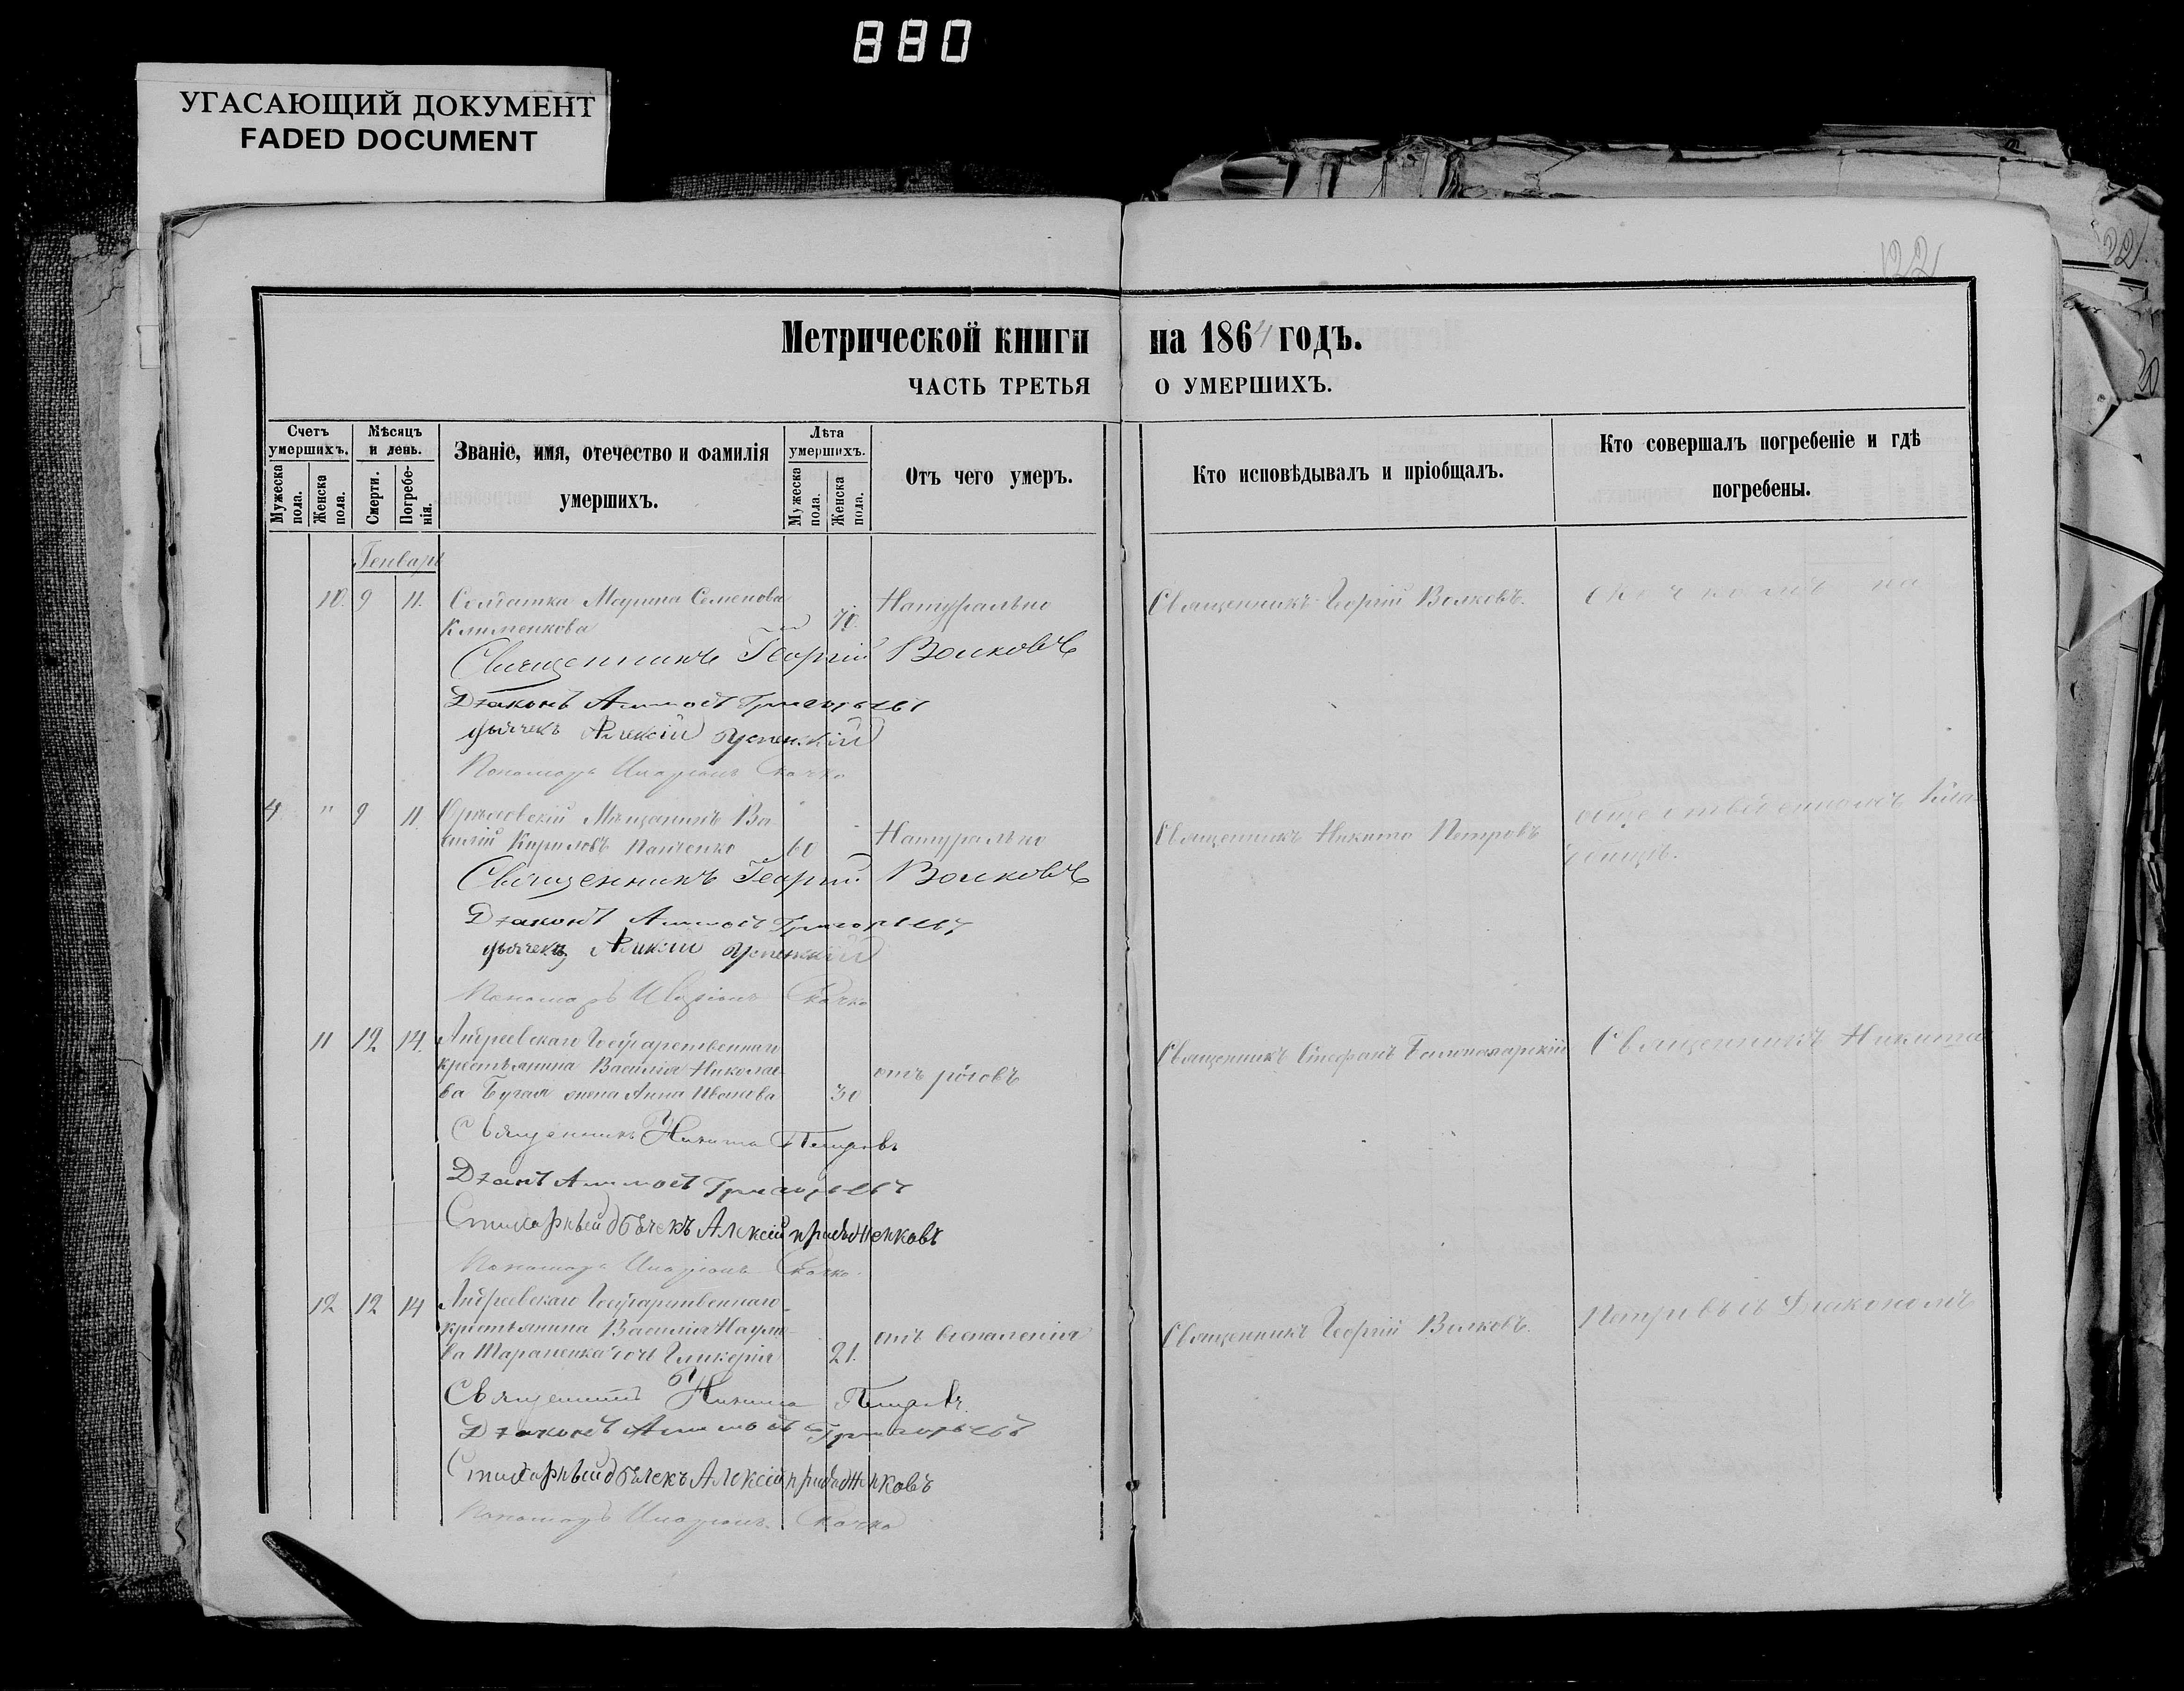 880
УГАСАЮЩИЙ ДОКУМЕНТ
FADED DOCUMENT
22
122
Метрической книги на 1864 годъ.
ЧАСТЬ ТРЕТЬЯ О УМЕРШИХЪ.
Счетъ умершихъ.
Мужеска пола.
Женска пола.
Мѣсяцъ и день.
Смерти.
Погребенія.
Званіе, имя, отечество и фамилія умершихъ.
Лѣта умершихъ.
Мужеска пола.
Женска пола.
Отъ чего умеръ.
Кто исповѣдывалъ и пріобщалъ.
Кто совершалъ погребеніе и гдѣ погребены.
Генварь
10. 9 11. Солдатка Марина Семенова Натурально Священникъ Георгій Волковъ. на
Клименкова 70.
Священникъ Георгій Волковъ
Діаконъ Григорьевъ
дьячекъ Алексій Успенскій
Пономарь Иларіонъ Скочко
4 " 9 11. Мѣщанинъ Ва- общественномъ кла-
силій Кириловъ Панченко 60 Натурально Священникъ Никита Петровъ дбищѣ.
Священникъ Георгій Волковъ
Діаконъ Григорьевъ
дьячекъ Алексій Успенскій
Пономарь Иларіонъ Скочко
11 12 14. Андреевскаго Государственнаго Священникъ Стефанъ Священникъ Никита
крестьянина Василія Николае- отъ родовъ
ва Бугая жена Анна Иванова 30
Священникъ Никита Петровъ
Григорьевъ
Стихарный дьячекъ Алексій
Пономарь Иларіонъ Скочко.
12 12 14 Андреевскаго Государственнаго Петровъ съ Діакономъ
крестьянина Василія Наумо- отъ воспаленія Священникъ Георгій Волковъ.
ва Тараненка дочь Гликерія 21.
Священникъ Никита Петровъ.
Діаконъ Григорьевъ
Стихарный дьячекъ Алексій
Пономарь Иларіонъ Скочко